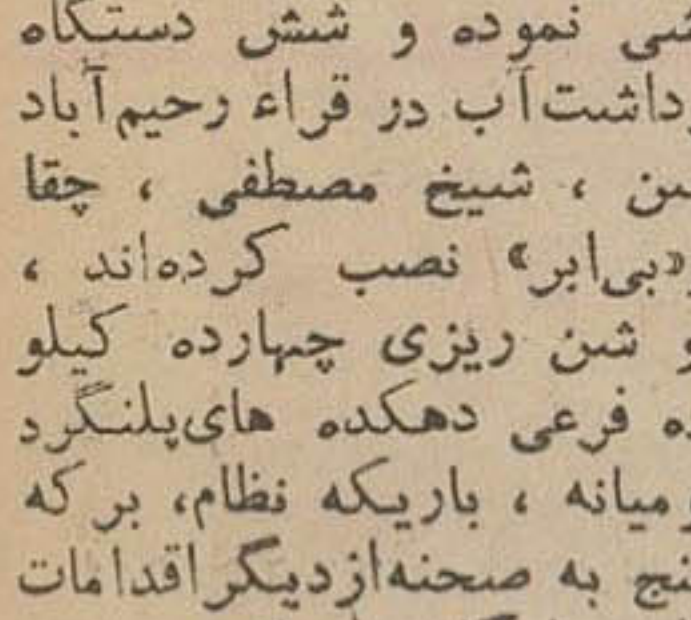 نموده و شش دستگاه
داشت آب در قراء رحیم‌آباد
، شیخ مصطفی ، چقا
«بی‌ابر» نصب کرده‌اند ،
و شن ریزی چهارده کیلو
فرعی دهکده های پلنگرد
میانه ، باریکه نظام، برکه
به صحنه از دیگر اقدامات